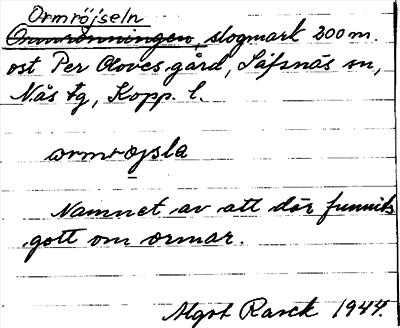 Ormröjseln
Ormrönningen, slogmark 200 m.
ost Per Olovs gård, Säfsnäs sn,
Nås tg, Kopp. l.
ormröjsla
Namnet av att där funnits
gott om ormar.
Algot Rasck 1944.